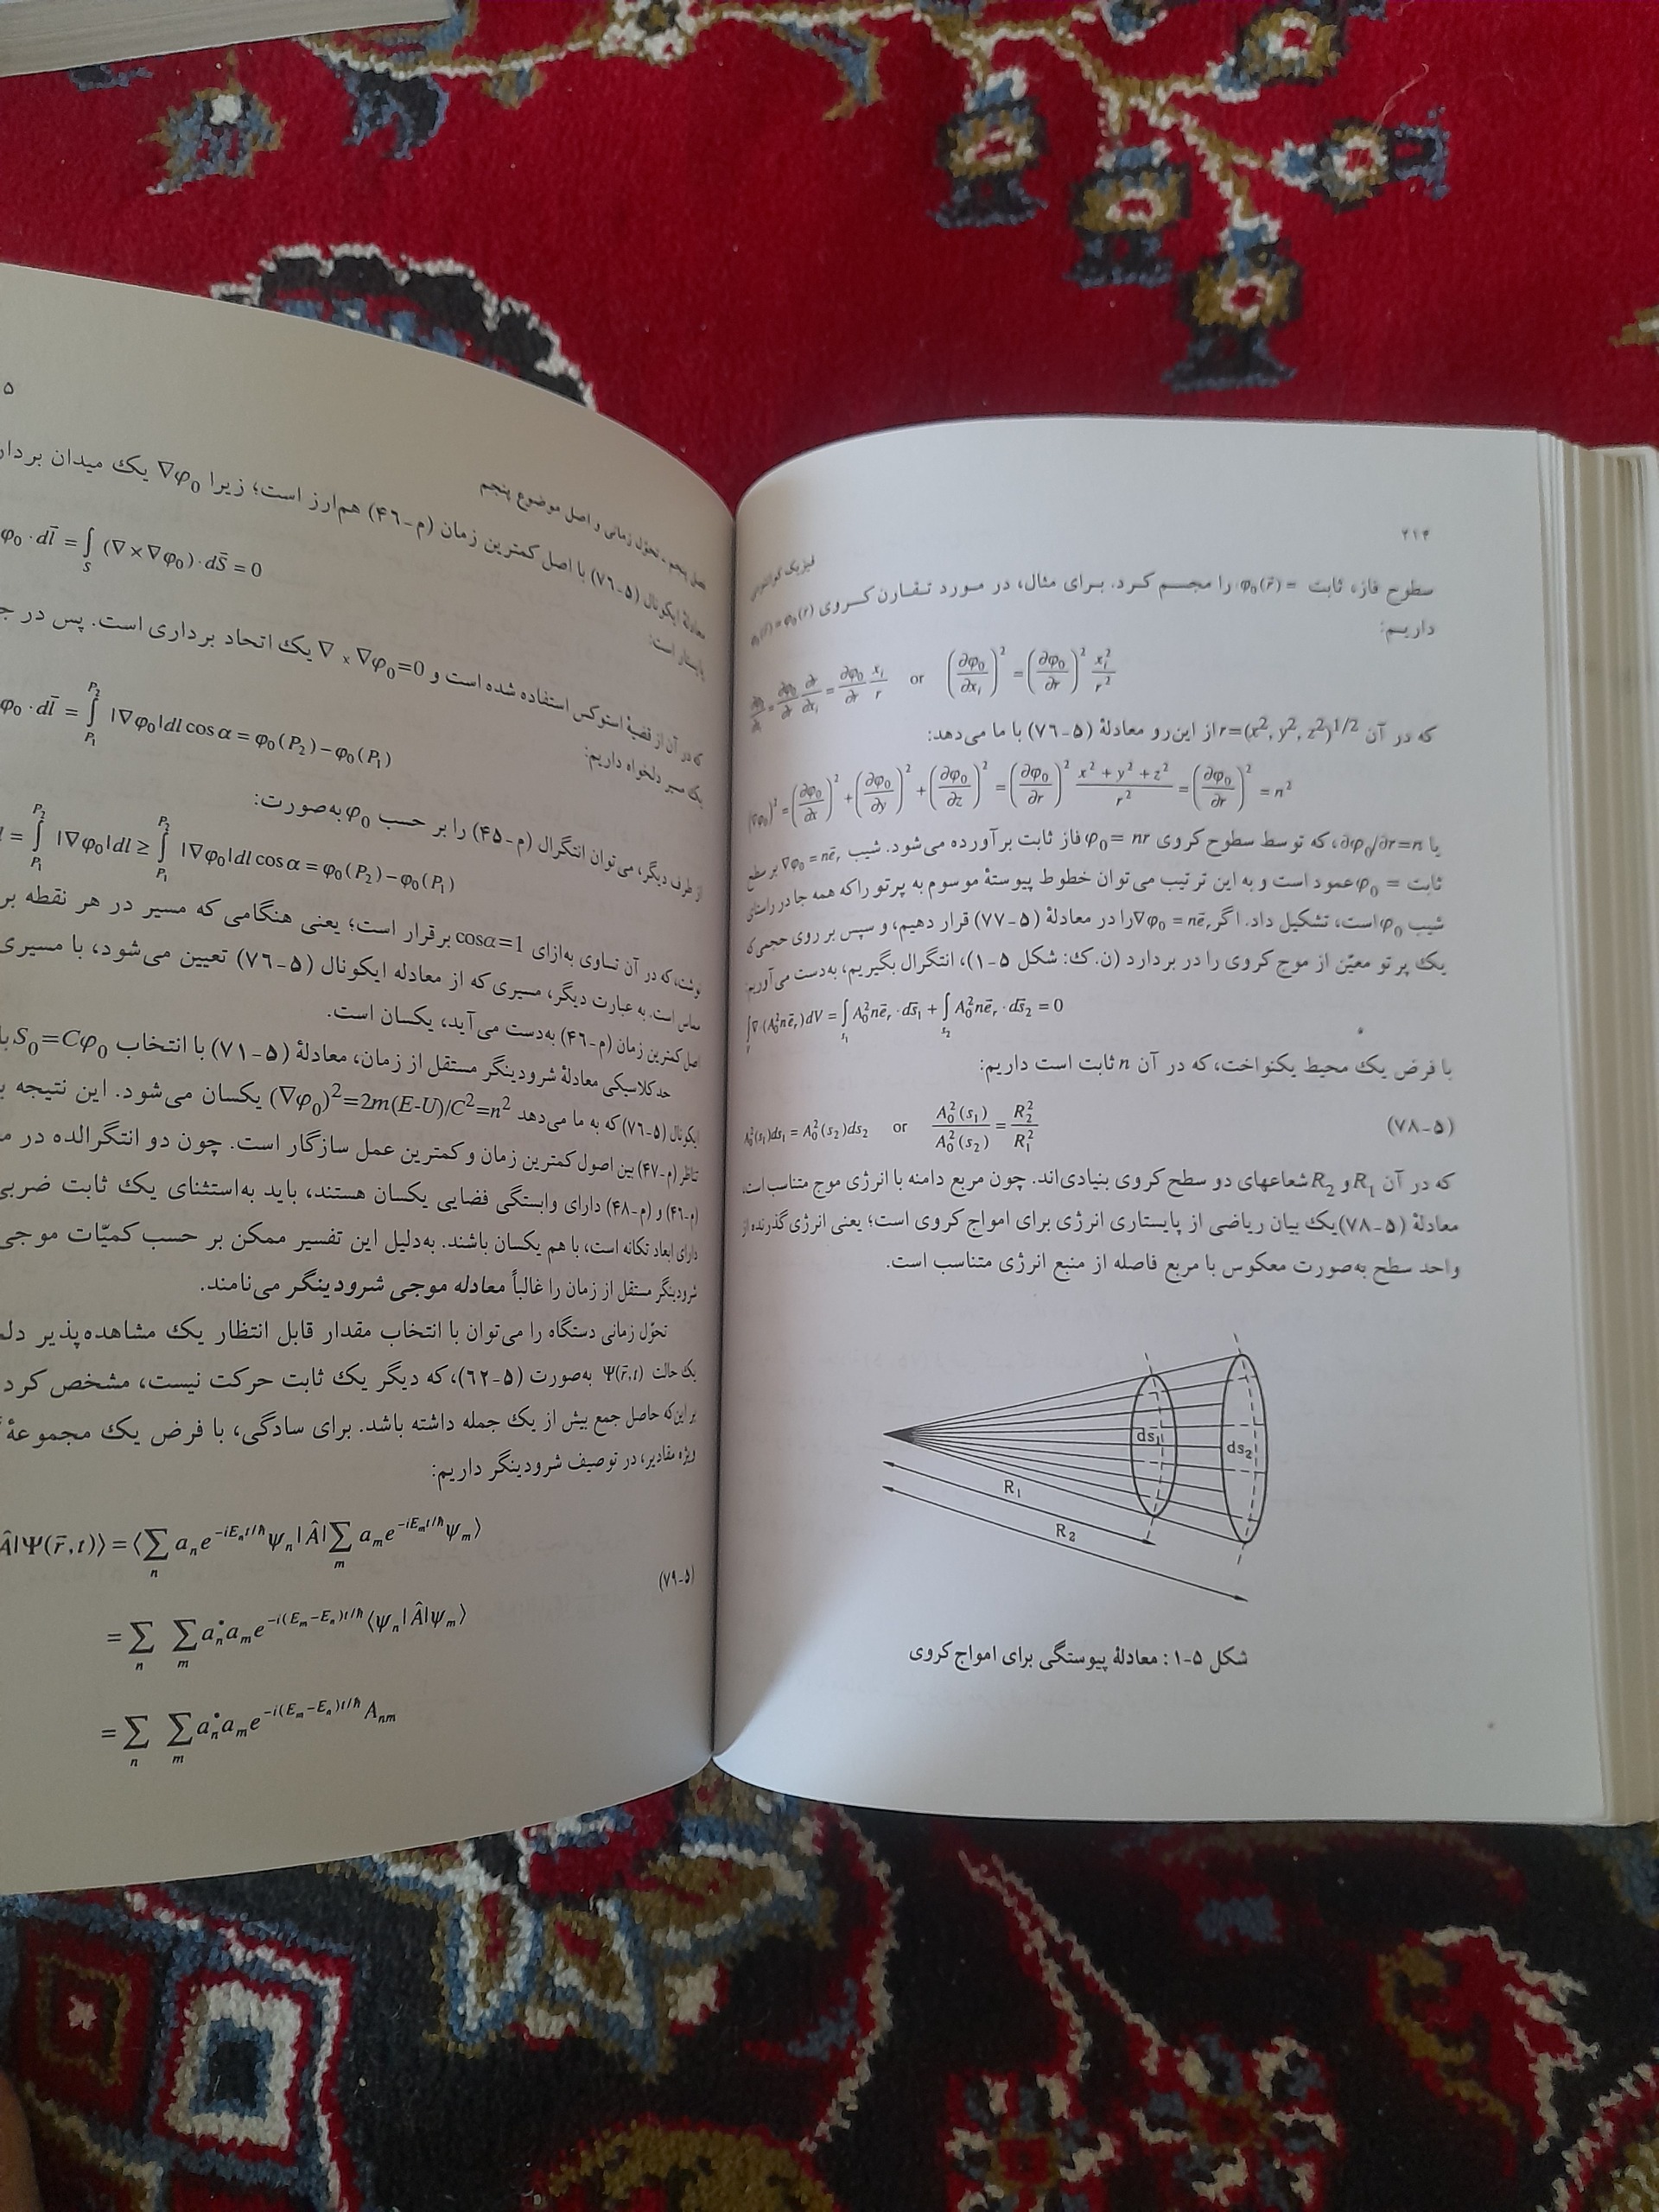 ۲۱۴
فیزیک کوانتومی
سطوح فازه ثابت = φ₀(r̄) را مجسم کرد. برای مثال، در مورد تقارن کروی φ₀(r̄) = φ₀(r)
داریم:
∂φ₀/∂xᵢ = ∂φ₀/∂r ∂r/∂xᵢ = ∂φ₀/∂r xᵢ/r or (∂φ₀/∂xᵢ)² = (∂φ₀/∂r)² xᵢ²/r²
که در آن r=(x², y², z²)^1/2 از این‌رو معادلهٔ (۵-۷۶) با ما می‌دهد:
(∇φ₀)² = (∂φ₀/∂x)² + (∂φ₀/∂y)² + (∂φ₀/∂z)² = (∂φ₀/∂r)² (x² + y² + z²)/r² = (∂φ₀/∂r)² = n²
یا ∂φ₀/∂r=n، که توسط سطوح کروی φ₀ = nr فاز ثابت برآورده می‌شود. شیب ∇φ₀ = nēᵣ بر سطح
ثابت = φ₀ عمود است و به این ترتیب می‌توان خطوط پیوستهٔ موسوم به پرتو را که همه جا در راستای
شیب φ₀ است، تشکیل داد. اگر ∇φ₀ = nēᵣ را در معادلهٔ (۵-۷۷) قرار دهیم، و سپس بر روی حجمی که
یک پرتو معیّن از موج کروی را در بردارد (ن.ک: شکل ۵-۱)، انتگرال بگیریم، به‌دست می‌آوریم:
∫ᵥ ∇·(A₀²nēᵣ)dV = ∫s₁ A₀²nēᵣ · ds̄₁ + ∫s₂ A₀²nēᵣ · ds̄₂ = 0
با فرض یک محیط یکنواخت، که در آن n ثابت است داریم:
A₀²(s₁)ds₁ = A₀²(s₂)ds₂ or A₀²(s₁)/A₀²(s₂) = R₂²/R₁² (۵-۷۸)
که در آن R₁ و R₂ شعاعهای دو سطح کروی بنیادی‌اند. چون مربع دامنه با انرژی موج متناسب است،
معادلهٔ (۵-۷۸) یک بیان ریاضی از پایستاری انرژی برای امواج کروی است؛ یعنی انرژی گذرنده از
واحد سطح به‌صورت معکوس با مربع فاصله از منبع انرژی متناسب است.
ds₁
ds₂
R₁
R₂
شکل ۵-۱: معادلهٔ پیوستگی برای امواج کروی
۵
فصل پنجم ـ تحوّل زمانی و اصل موضوع پنجم
معادلهٔ ایکونال (۵-۷۶) با اصل کمترین زمان (م-۴۶) هم‌ارز است؛ زیرا ∇φ₀ یک میدان
پایستار است:
φ₀ · dl̄ = ∫s (∇×∇φ₀)·dS̄ = 0
که در آن از قضیهٔ استوکس استفاده شده است و ∇ × ∇φ₀=0 یک اتحاد برداری است. پس در
یک مسیر دلخواه داریم:
φ₀ · dl̄ = ∫P₁^P₂ |∇φ₀|dl cos α = φ₀(P₂)−φ₀(P₁)
از طرف دیگر، می‌توان انتگرال (م-۴۵) را بر حسب φ₀ به‌صورت:
= ∫P₁^P₂ |∇φ₀|dl ≥ ∫P₁^P₂ |∇φ₀|dl cos α = φ₀(P₂)−φ₀(P₁)
نوشت، که در آن تساوی به‌ازای cosα=1 برقرار است؛ یعنی هنگامی که مسیر در هر نقطه بر
مماس است. به عبارت دیگر، مسیری که از معادله ایکونال (۵-۷۶) تعیین می‌شود، با مسیری
اصل کمترین زمان (م-۴۶) به‌دست می‌آید، یکسان است.
حد کلاسیکی معادلهٔ شرودینگر مستقل از زمان، معادلهٔ (۵-۷۱) با انتخاب S₀=Cφ₀ با
ایکونال (۵-۷۶) که به ما می‌دهد (∇φ₀)²=2m(E-U)/C²=n² یکسان می‌شود. این نتیجه
تناظر (م-۴۷) بین اصول کمترین زمان و کمترین عمل سازگار است. چون دو انتگرالده در
(م-۴۶) و (م-۴۸) دارای وابستگی فضایی یکسان هستند، باید به‌استثنای یک ثابت ضربی
دارای ابعاد تکانه است، با هم یکسان باشند. به‌دلیل این تفسیر ممکن بر حسب کمیّات موجی
شرودینگر مستقل از زمان را غالباً معادله موجی شرودینگر می‌نامند.
تحوّل زمانی دستگاه را می‌توان با انتخاب مقدار قابل انتظار یک مشاهده‌پذیر
یک حالت Ψ(r̄,t) به‌صورت (۵-۶۲)، که دیگر یک ثابت حرکت نیست، مشخص کرد
بر این‌که حاصل جمع بیش از یک جمله داشته باشد. برای سادگی، با فرض یک مجموعهٔ
ویژه مقادیر، در توصیف شرودینگر داریم:
Â|Ψ(r̄,t)⟩ = ⟨∑ₙ aₙe^−iEₙt/ħ ψₙ|Â|∑ₘ aₘe^−iEₘt/ħ ψₘ⟩
(۵-۷۹)
= ∑ₙ ∑ₘ aₙ*aₘe^−i(Eₘ−Eₙ)t/ħ ⟨ψₙ|Â|ψₘ⟩
= ∑ₙ ∑ₘ aₙ*aₘe^−i(Eₘ−Eₙ)t/ħ Aₙₘ